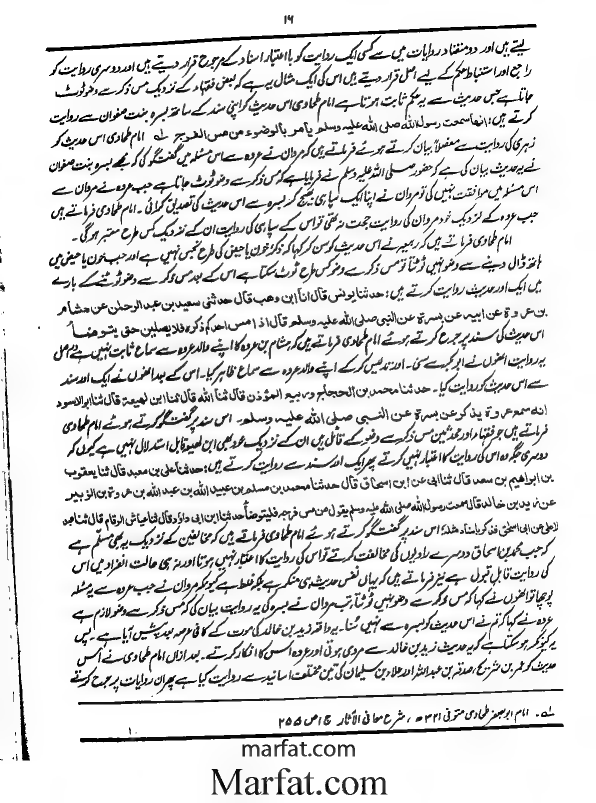 ۱۶
لیتے ہیں اور دو متضاد روایات میں سے کسی ایک روایت کو باعتبار اسناد کے مرجوح قرار دیتے ہیں اور دوسری روایت کو
راجح اور استنباط حکم کے لیے اصل قرار دیتے ہیں اس کی ایک مثال یہ ہے کہ بعض فقہاء کے نزدیک مس ذکر سے وضو ٹوٹ
جاتا ہے جس حدیث سے یہ حکم ثابت ہوتا ہے امام طحاوی اس حدیث کو اپنی سند کے ساتھ بسرہ بنت صفوان سے روایت
کرتے ہیں: انها سمعت رسول الله صلی الله علیه وسلم یأمر بالوضوء من مس الفرج لہ امام طحاوی اس حدیث کو
زہری کی روایت سے مفصلاً بیان کرتے ہوئے فرماتے ہیں کہ مروان نے عروہ سے اس مسئلہ میں گفتگو کی کہ مجھے بسرہ بنت صفوان
نے یہ حدیث بیان کی ہے کہ حضور صلی اللہ علیہ وسلم نے فرمایا ہے کہ مس ذکر سے وضو ٹوٹ جاتا ہے جب عروہ نے مروان سے
اس مسئلہ میں موافقت نہیں کی تو مروان نے اپنا ایک سپاہی بھیج کر بسرہ سے اس حدیث کی تصدیق کرائی۔ امام طحاوی فرماتے ہیں
جب عروہ کے نزدیک خود مروان کی روایت حجت نہ تھی تو اس کے سپاہی کی روایت ان کے نزدیک کس طرح معتبر ہوگی۔
امام طحاوی فرماتے ہیں کہ ربیعہ نے اس حدیث کو سن کر کہا کہ ذکر خون یا حیض کی طرح نجس نہیں ہے اور جب خون یا حیض میں
ہاتھ ڈال دینے سے وضو نہیں ٹوٹتا تو مس ذکر سے وضو کس طرح ٹوٹ سکتا ہے اس کے بعد مس ذکر سے وضو ٹوٹنے کے بارے
میں ایک اور حدیث روایت کرتے ہیں: حدثنا یونس قال انا ابن وهب قال حدثنی سعید بن عبد الرحمان عن هشام
بن عروة عن ابیه عن بسرة عن النبی صلی الله علیه وسلم قال اذا مس احدکم ذکره فلا یصلین حتی یتوضأ
اس حدیث کی سند پر جرح کرتے ہوئے امام طحاوی فرماتے ہیں کہ ہشام بن عروہ کا اپنے والد عروہ سے سماع ثابت نہیں ہے دراصل
یہ روایت انھوں نے ابوبکر سے سنی۔ اور تدلیس کر کے اپنے والد عروہ سے سماع ظاہر کیا۔ اس کے بعد انھوں نے ایک اور سند
سے اس حدیث کو روایت کیا۔ حدثنا محمد بن الحجاج وربیع المؤذن قال ثنا اسد قال ثنا ابن لهیعة قال ثنا ابوالاسود
انه سمع عروة یذکر عن بسرة عن النبی صلی الله علیه وسلم۔ اس سند پر گفتگو کرتے ہوئے امام طحاوی
فرماتے ہیں جو فقہاء اور محدثین مس ذکر سے وضو کے قائل ہیں ان کے نزدیک خود بھی ابن لہیعہ قابل استدلال نہیں ہے کیوں کہ
دوسری جگہ وہ اس کی روایت کا اعتبار نہیں کرتے پھر ایک اور سند سے روایت کرتے ہیں: حدثنا علی بن معبد قال ثنا یعقوب
بن ابراهیم بن سعد قال ثنا ابی عن ابن اسحاق قال حدثنا محمد بن مسلم بن عبید الله بن عبد الله عن عروة بن الزبیر
عن زید بن خالد قال سمعت رسول الله صلی الله علیه وسلم یقول من مس فرجه فلیتوضأ حدثنا ابن ابی داؤد قال ثنا عیاش الرقام قال ثنا عبد
الاعلی عن ابن اسحاق فذکر باسناده مثله: اس سند پر گفتگو کرتے ہوئے امام طحاوی فرماتے ہیں کہ مخالفین کے نزدیک یہ بھی مسلم ہے
کہ جب محمد بن اسحاق دوسرے راویوں کی مخالفت کرتے تو اس کی روایت کا اعتبار نہیں ہوتا اور نہ ہی حالت انفراد میں اس
کی روایت قابل قبول ہے نیز فرماتے ہیں کہ یہاں نفس حدیث ہی منکر ہے بلکہ غلط ہے کیونکہ مروان نے جب عروہ سے یہ مسئلہ
پوچھا تو انھوں نے کہا کہ مس ذکر سے وضو نہیں ٹوٹتا، تب مروان نے بسرہ کی یہ روایت بیان کی کہ مس ذکر سے وضو لازم ہے
عروہ نے کہا کہ تم نے اس حدیث کو بسرہ سے نہیں سنا۔ یہ واقعہ زید بن خالد کی موت کے کافی عرصہ بعد پیش آیا ہے۔ پس
یہ کیونکر ہو سکتا ہے کہ یہ حدیث زید بن خالد سے مروی ہوتی اور عروہ اس کا انکار کرتے۔ بعد ازاں امام طحاوی نے اس
حدیث کو عمر بن شریح، صدقہ بن عبداللہ اور علاء بن سلمان کی تین مختلف اسانید سے روایت کیا ہے پھر ان روایات پر جرح کرتے
لہ۔ امام ابوجعفر طحاوی متوفی ۳۲۱ھ، شرح معانی الآثار ج ۱ ص ۲۵۵
marfat.com
Marfat.com